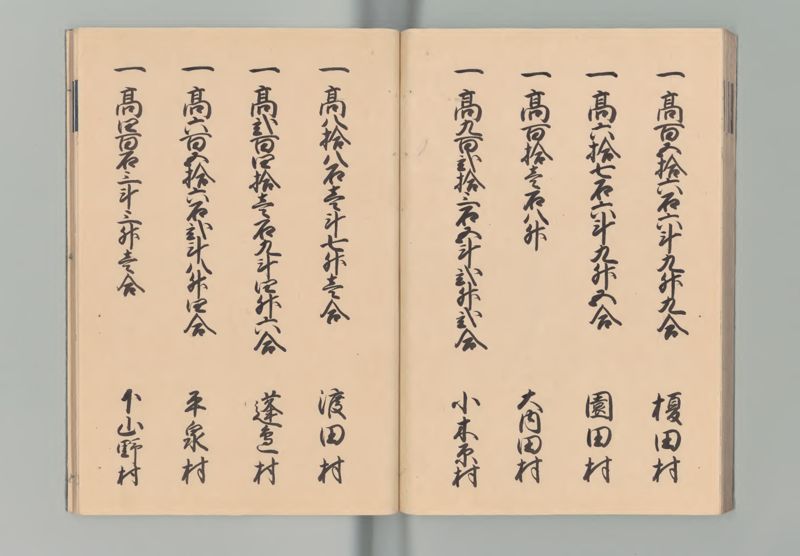 一 高百五拾六石六斗九升九合 榎田村
一 高六拾七石六斗九升五合 園田村
一 高百拾壱石八升 大内田村
一 高九百弐拾三石五斗弐升弐合 小木原村
一 高八拾八石壱斗七升壱合 渡田村
一 高弐百四拾壱石九斗四升六合 蓬 村
一 高六百五拾六石弐斗八升四合 平泉村
一 高四百石三斗三升壱合 下山野村